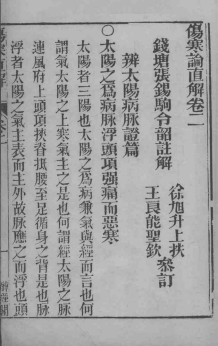 傷寒論直解卷二
錢塘張錫駒令韶註解
徐旭升上扶
王良能聖欽
參訂
辨太陽病脉證篇
○太陽之為病脉浮頭項強痛而惡寒
太陽者三陽也太陽之為病兼氣與經而言也何
謂氣太陽之上寒氣主之是也何謂經太陽之脉
連風府上頭項挾脊抵腰至足循身之背是也脉
浮者太陽之氣主表而主外故脉應之而浮也頭